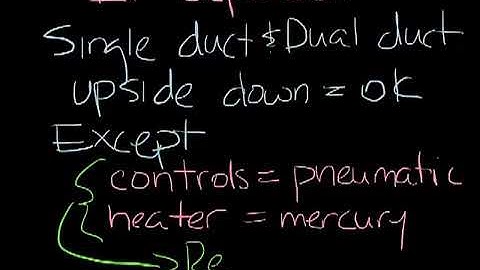 Single duct & Dual duct
upside down = ok
Except
controls = pneumatic
heater = mercury
Re